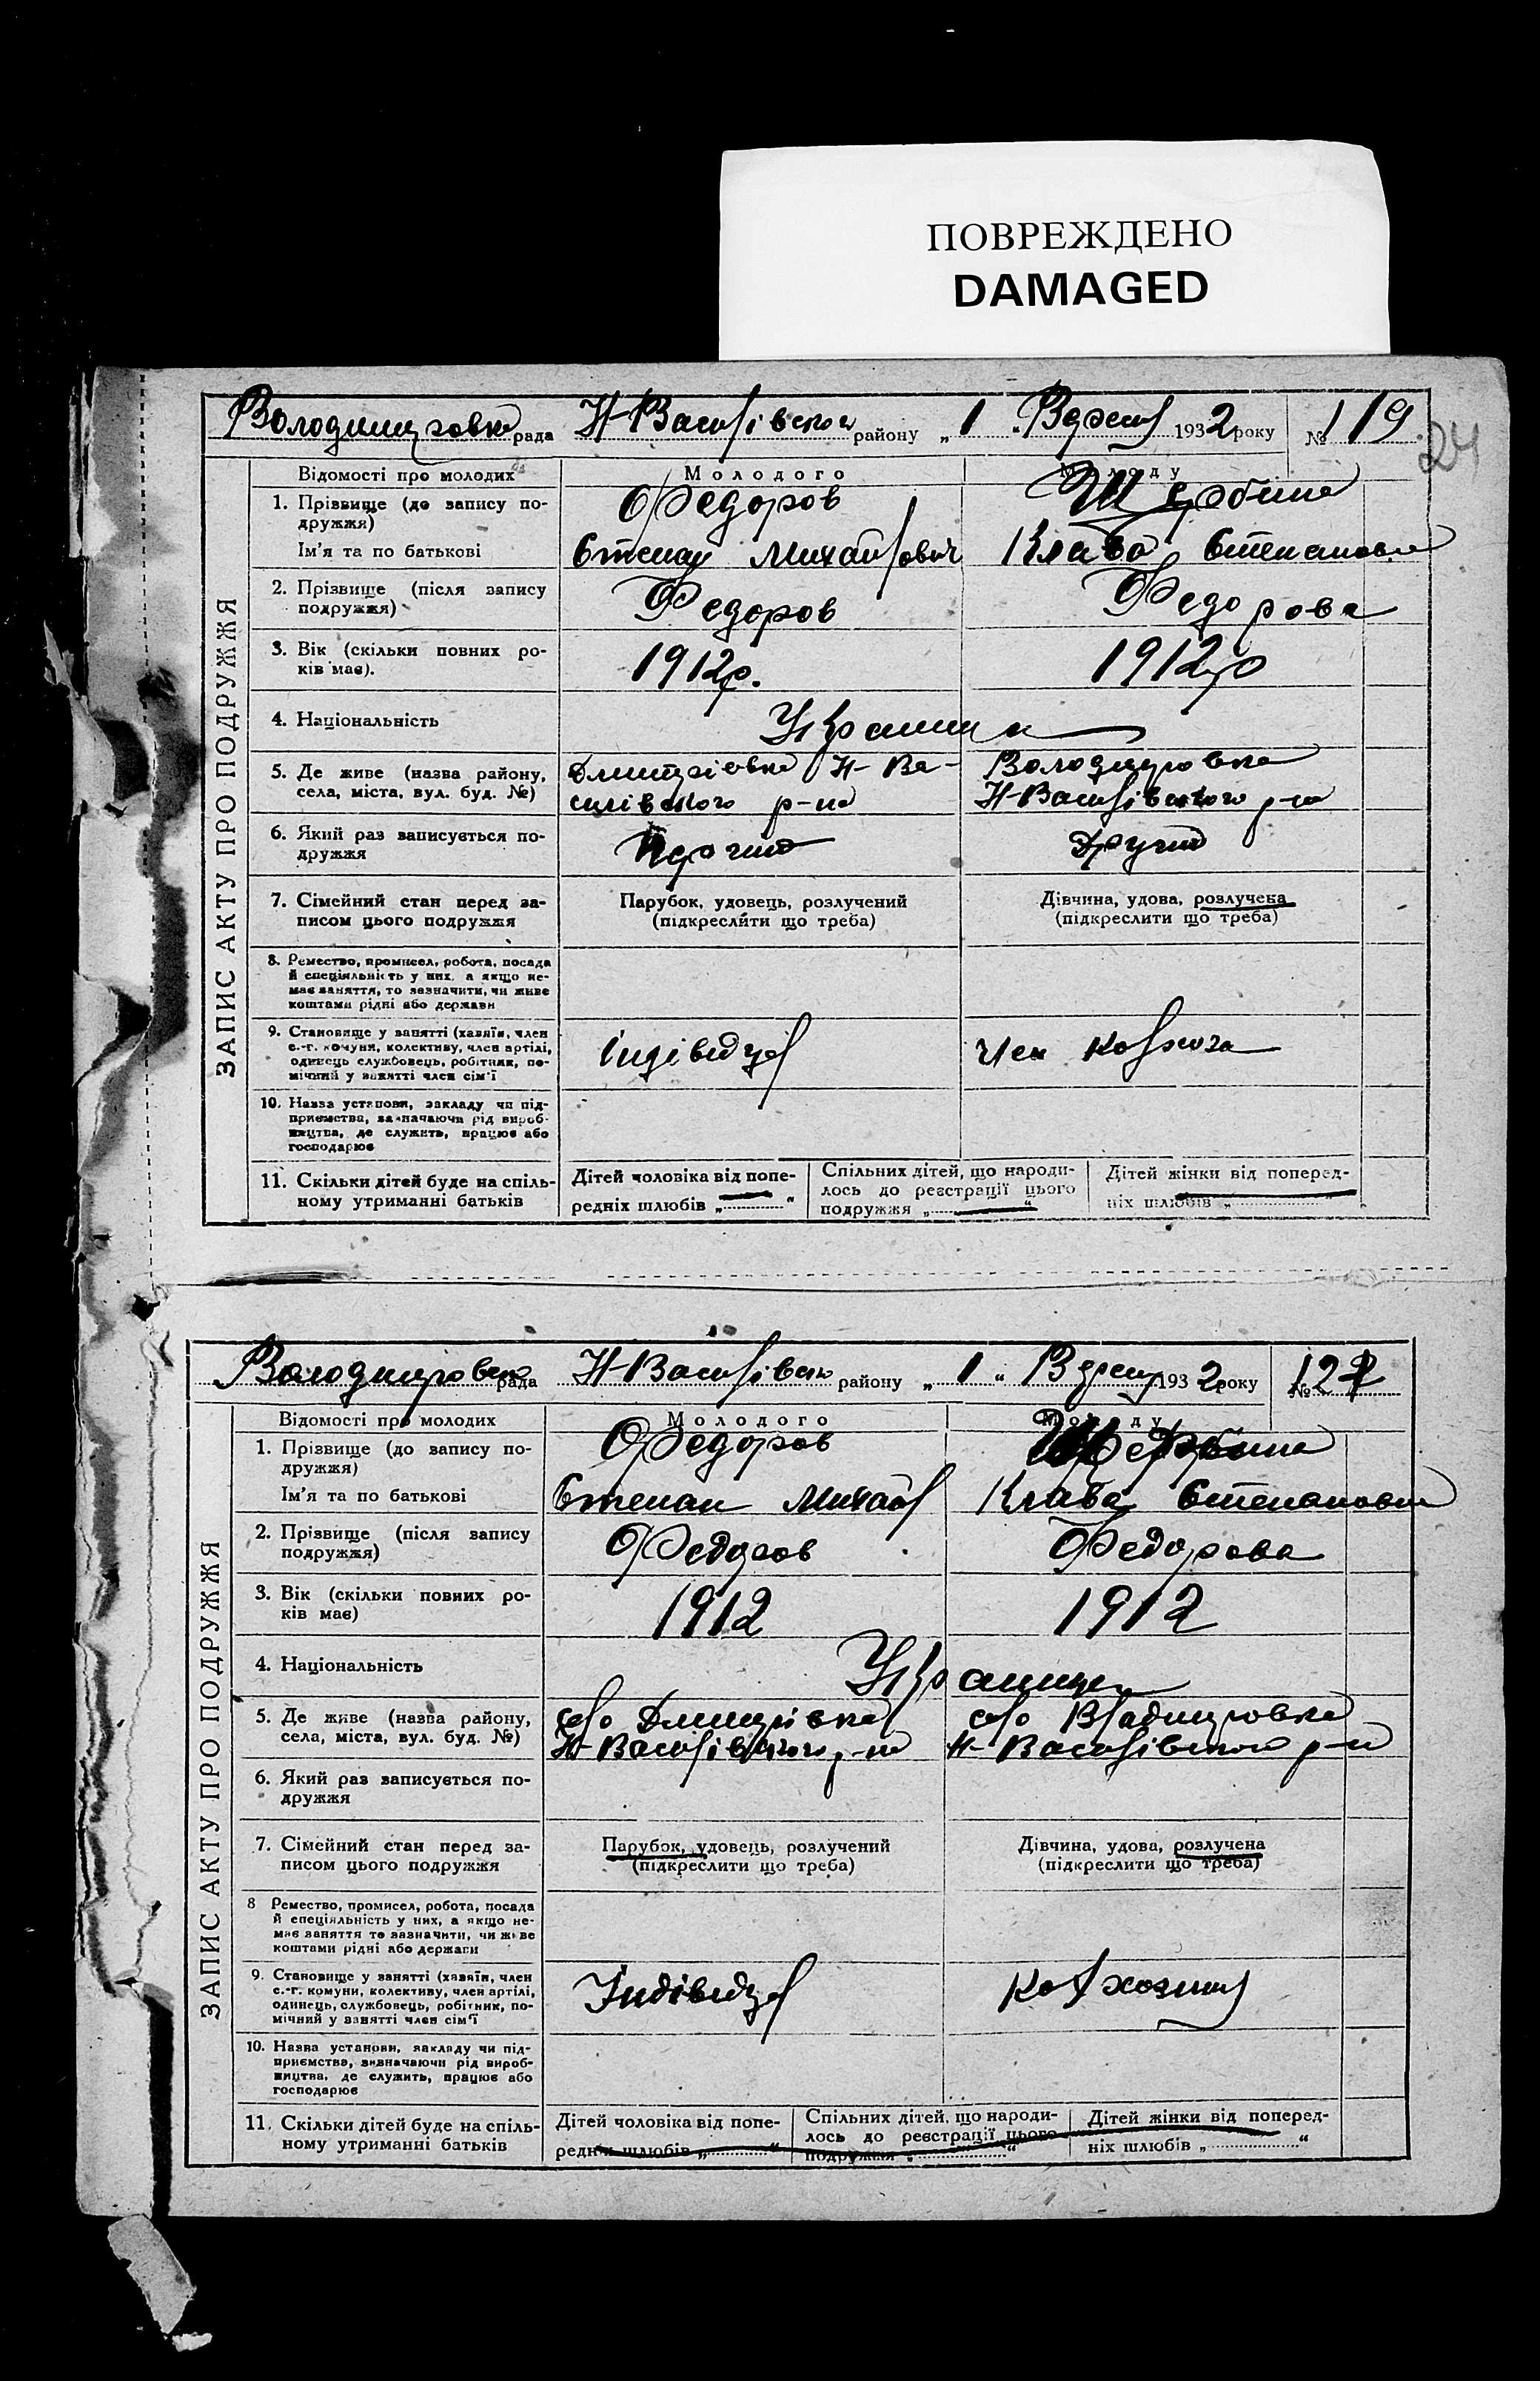 ПОВРЕЖДЕНО
DAMAGED
рада Н-Васи району „1 193 2 року № 119
24
Відомості про молодих Молодого Молоду
1. Прізвище (до запису по-
дружжя) Федоров Щербина
Ім'я та по батькові Степан Михайлович Клава Степановна
2. Прізвище (після запису
подружжя) Федоров Федорова
3. Вік (скільки повних ро-
ків має). 1912р. 1912р
4. Національність
5. Де живе (назва району, Н-Ва-
села, міста, вул. буд. №) силівского р-на Н-Василівского р-на
6. Який раз записується по-
дружжя Другий
7. Сімейний стан перед за- Парубок, удовець, розлучений Дівчина, удова, розлучена
писом цього подружжя (підкреслити що треба) (підкреслити що треба)
8. Ремество, промисел, робота, посада
й спеціяльність у них, а якщо не-
має заняття, то зазначити, чи живе
коштами рідні або держави
9. Становище у занятті (хазяїн, член
с.-г. комуни, колективу, член артілі,
одинець службовець, робітник, по-
мічний у занятті член сім'ї індівідуал Член колхоза
10. Назва установи, закладу чи під-
приємства, зазначаючи рід вироб-
ництва, де служить, працює або
господарює
11. Скільки дітей буде на спіль- Дітей чоловіка від попе- Спільних дітей, що народи- Дітей жінки від поперед-
ному утриманні батьків редніх шлюбів „ “ лось до реєстрації цього ніх шлюбів „ “
подружжя „ “
ЗАПИС АКТУ ПРО ПОДРУЖЖЯ
рада району „1“ 193 2 року № 12
Відомості про молодих Молодого Молоду
1. Прізвище (до запису по-
дружжя) Федоров
Ім'я та по батькові Степан Михайл Клава Степановна
2. Прізвище (після запису
подружжя) Федоров Федорова
3. Вік (скільки повних ро-
ків має) 1912 1912
4. Національність
5. Де живе (назва району, село село
села, міста, вул. буд. №) Н-Василівского р-на Н-Василівского р-н
6. Який раз записується по-
дружжя
7. Сімейний стан перед за- Парубок, удовець, розлучений Дівчина, удова, розлучена
писом цього подружжя (підкреслити що треба) (підкреслити що треба)
8 Ремество, промисел, робота, посада
й спеціяльність у них, а якщо не-
має заняття то зазначити, чи живе
коштами рідні або держави
9. Становище у занятті (хазяїн, член
с.-г. комуни, колективу, член артілі,
одинець, службовець, робітник, по-
мічний у занятті член сім'ї Індівідуал
10. Назва установи, закладу чи під-
приємства, зазначаючи рід вироб-
ництва, де служить, працює або
господарює
11. Скільки дітей буде на спіль- Дітей чоловіка від попе- Спільних дітей, що народи- Дітей жінки від поперед-
ному утриманні батьків редніх шлюбів „ “ лось до реєстрації цього ніх шлюбів „ “
подружжя „ “
ЗАПИС АКТУ ПРО ПОДРУЖЖЯ